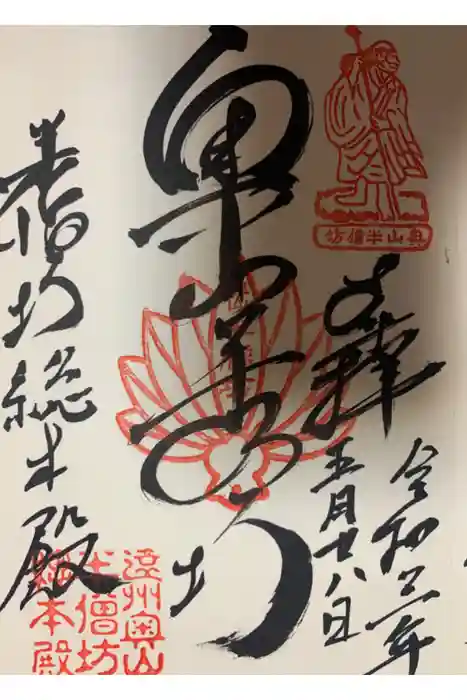 奉拝
令和三年
五月廿八日
奥山半僧坊
半僧坊総本殿
奥山半僧坊
遠州奥山
半僧坊
総本殿